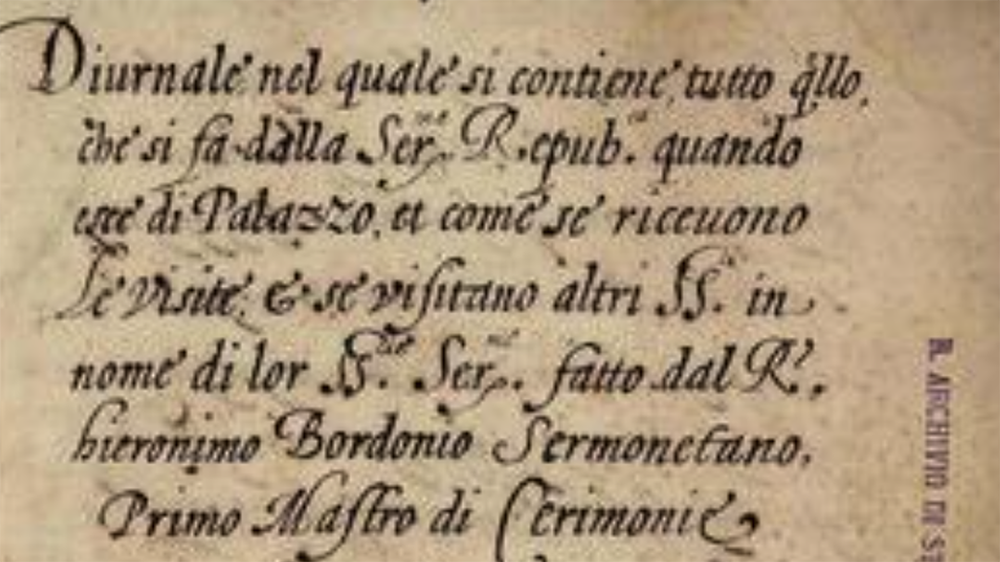 Diurnale nel quale si contiene tutto qllo,
che si fa dalla Ser.ma Repub.ca quando
esce di Palazzo, et come se riceuono
Le visite, & se visitano altri SS.ri in
nome di lor SS.rie Ser.me. fatto dal R.do.
hieronimo Bordonio Sermonetano,
Primo Mastro di Cerimonie
R. ARCHIVIO DI ST